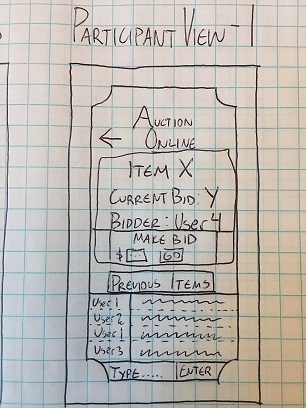 PARTICIPANT VIEW-1
AUCTION
ONLINE
ITEM X
CURRENT BID: Y
BIDDER: User 4
MAKE BID
$ GO
PREVIOUS ITEMS
User 1
User 2
User 1
User 3
TYPE..... ENTER